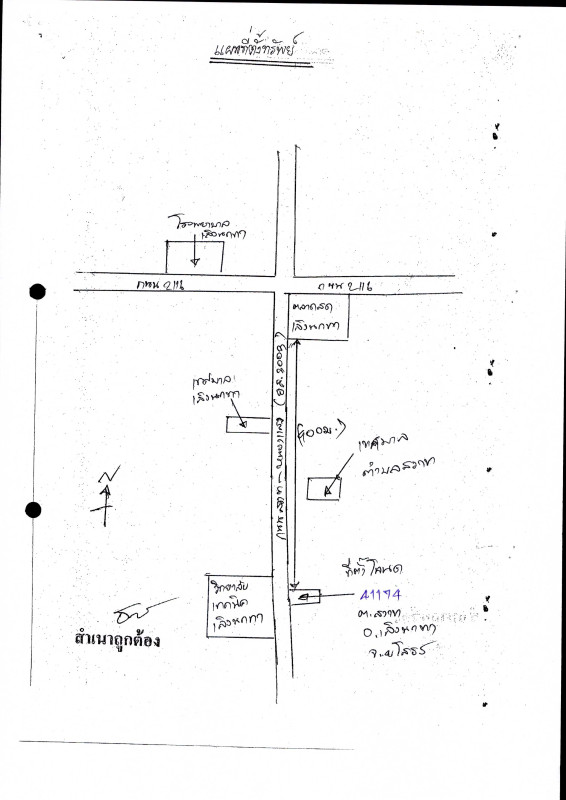 แผนที่ตั้งทรัพย์
โรงพยาบาล
เลิงนกทา
ถนน 2116
ถนน 2116
ตลาดสด
เลิงนกทา
เทศบาล
เลิงนกทา
เทศบาล
ตำบลสวาท
N
วิทยาลัย
เทคนิค
เลิงนกทา
ที่ตั้ง โฉนด
41174
ต.สวาท
อ.เลิงนกทา
จ.ยโสธร
สำเนาถูกต้อง